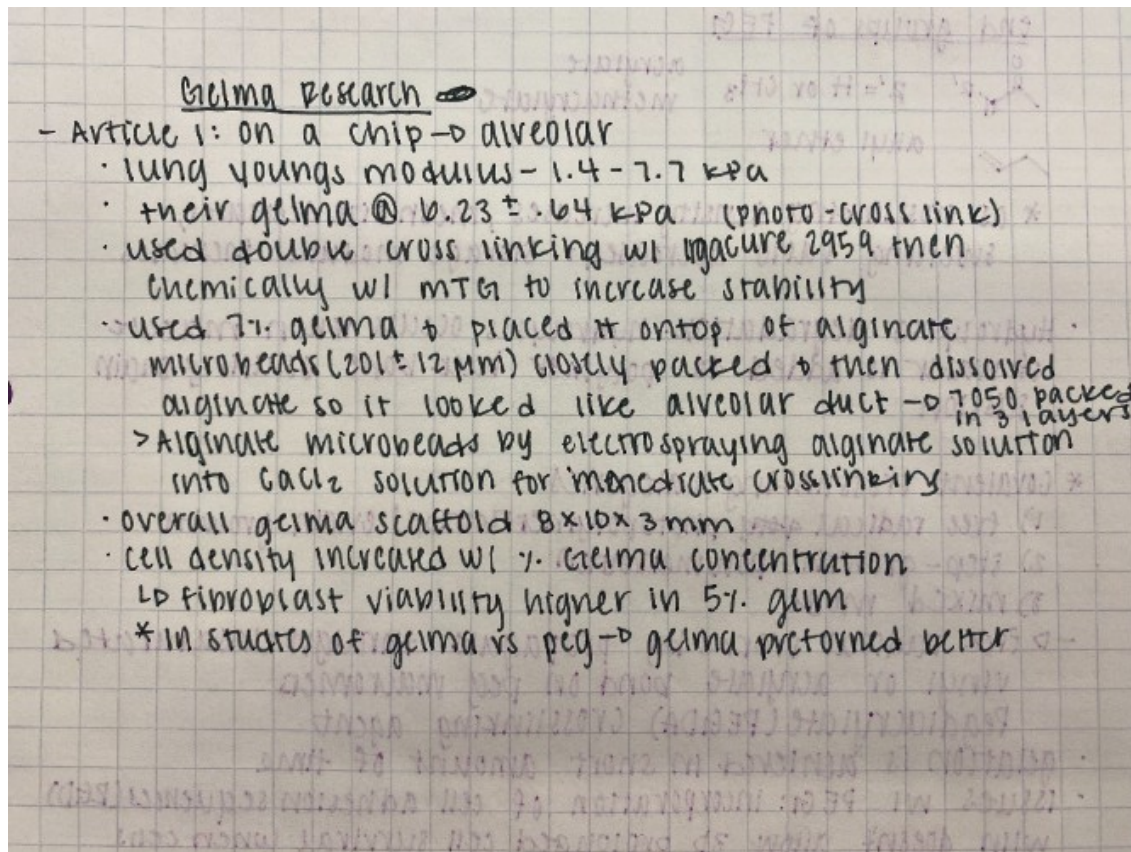 Gelma Research
- Article 1: on a chip → alveolar
· lung youngs modulus - 1.4 - 7.7 kPa
· their gelma @ 6.23 ± .64 kPa (photo-crosslink)
· used double cross linking w/ igacure 2959 then
chemically w/ mTG to increase stability
· used 7% gelma & placed it ontop of alginate
microbeads (201 ± 12 μm) closely packed & then dissolved
alginate so it looked like alveolar duct → 7050 packed
in 3 layers
> Alginate microbeads by electrospraying alginate solution
into CaCl₂ solution for immediate crosslinking
· overall gelma scaffold 8×10×3 mm
· cell density increased w/ % Gelma concentration
↳ fibroblast viability higher in 5% gelm
* In studies of gelma vs peg → gelma preformed better